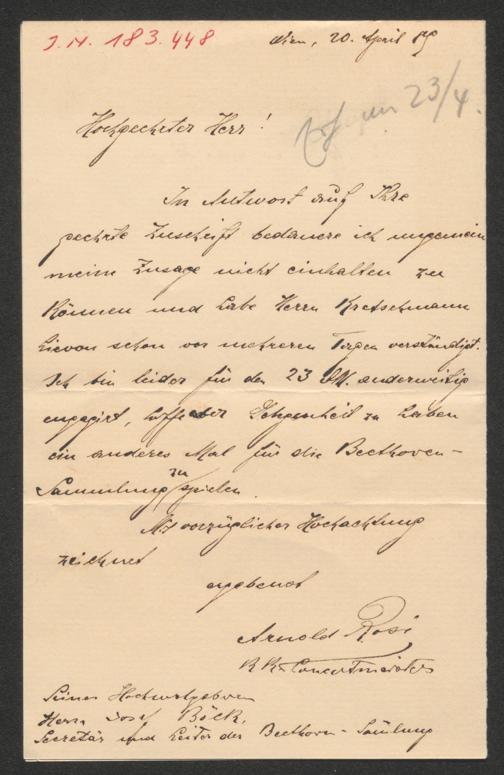 J.N. 183.448
Wien, 20. April 89
23/4.
Hochgeehrter Herr!
In Antwort auf Ihre
geehrte Zuschrift bedauere ich ungemein
meine Zusage nicht einhalten zu
können und habe Herrn Kretschmann
hievon schon vor mehreren Tagen verständigt.
Ich bin leider für den 23 d.M. anderweitig
engagirt, hoffe aber Gelegenheit zu haben
ein anderes Mal für die Beethoven-
Sammlung zu spielen.
Mit vorzüglicher Hochachtung
zeichnet
ergebenst
Arnold Rosé
KK Concertmeister
Seiner Hochwolgeboren
Herrn Josef Böck,
Secretär und Leiter der Beethoven-Samlung